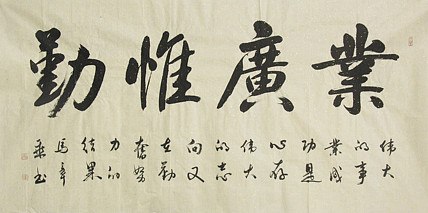 業廣惟勤
伟大
的事
業成
功是
心存
伟大
的志
向又
在勤
奮努
力的
结果
馬年